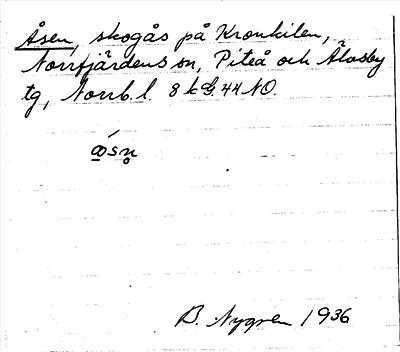 Åsen, skogås på Kronkilen,
Norrfjärdens sn, Piteå och Älvsby
tg, Norrb. l. 8 k G. 44 NO.
B. Nygren 1936